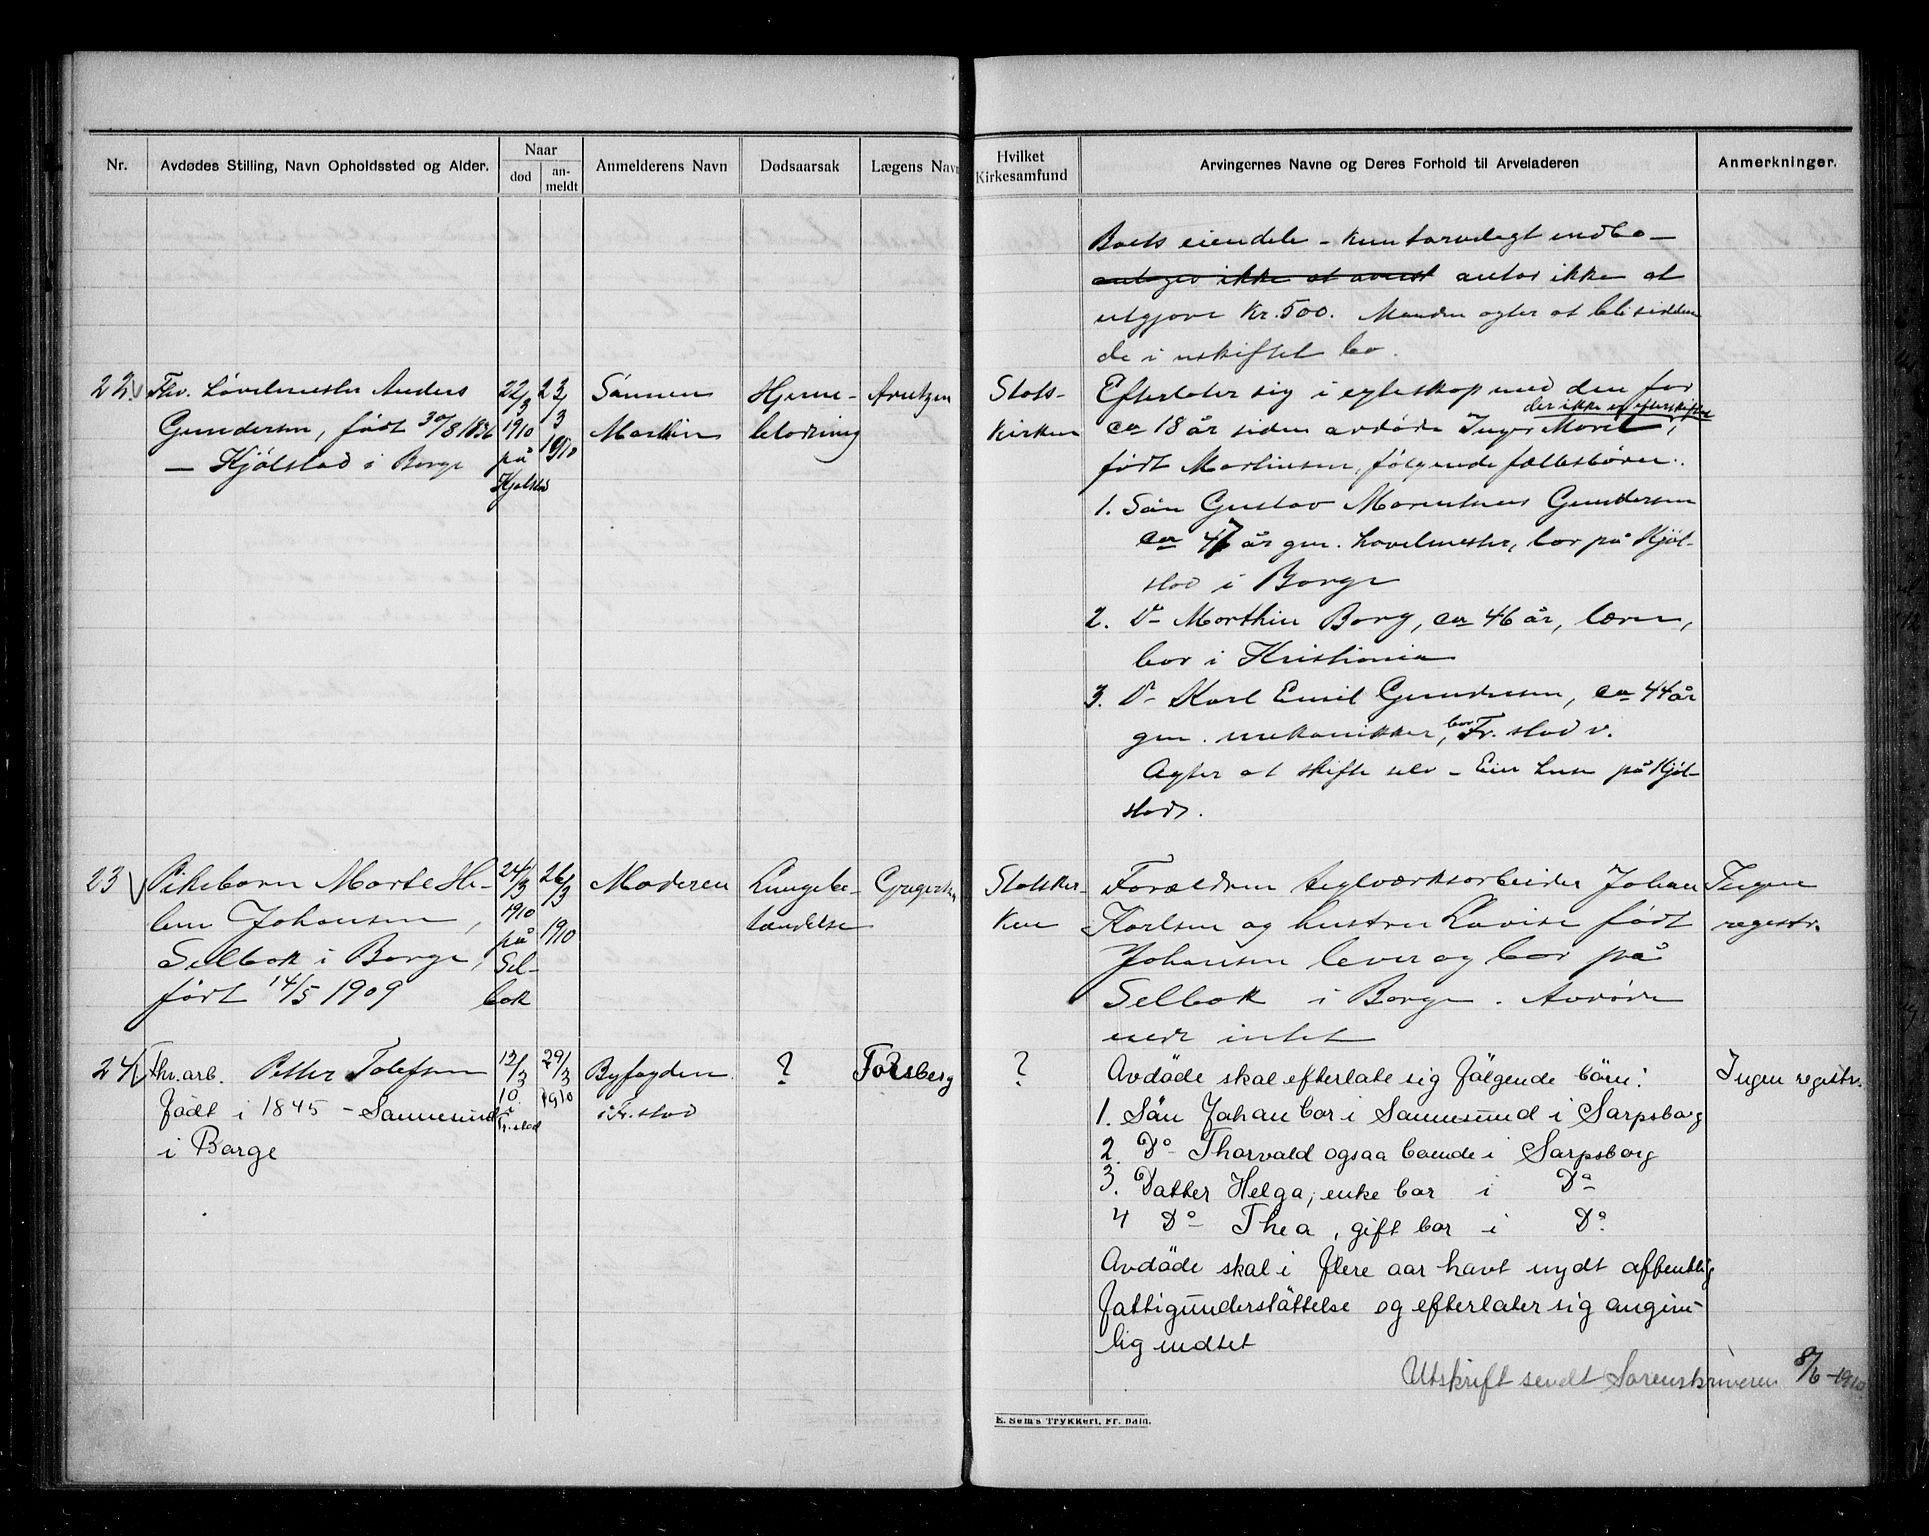 Nr.
Avdødes Stilling, Navn Opholdssted og Alder.
Naar
død
an-
meldt
Anmelderens Navn
Dødsaarsak
Lægens Navn
Hvilket
Kirkesamfund
Arvingernes Navne og Deres Forhold til Arveladeren
Anmerkninger.
Boets eiendele – kun tarvelegt indbo –
antages ikke at antas ikke at
utgjøre Kr. 500. Manden agter at bli sidden
de i uskiftet bo.
22
Fhv. Anders
Gundersen, født 30/8 1836
– Kjølstad i Borge
22/3
1910
på
Kjølstad
23/3
1910
Sønnen
Marthin
Hjerne-
blødning
Arntzen
Stats-
kirken
Efterlater sig i egteskap med den for
der ikke er efterskiftet
ca 18 år siden avdøde Inger Marie,
født Martinsen, følgende fællesbørn:
1. Søn Gustav Marentius Gundersen
ca 47 år gm. bor på Kjøl-
stad i Borge
2. Do Marthin Borg, ca 46 år, lærer,
bor i Kristiania
3. Do Karl Emil Gundersen, ca 44 år
gm. mekanikker, bor Fr.stad v.
Agter at skifte selv – Eier huse på Kjøl-
stad.
23
Pikebarn Marte He-
lene Johansen,
Selbak i Borge,
født 14/5 1909
24/3
1910
på
Sel-
bak
26/3
1910
Moderen
Lungebe-
tændelse
Gregersen
Statskir-
ken
Forældrene teglværksarbeider Johan
Karlsen og hustru Lovise født
Johansen lever og bor på
Selbak i Borge. Avdøde
eiede intet
Ingen
registr.
24
Fhv. arb. Petter Tolefsen
født i 1845 – Sannesund
i Borge
13/3
10.
i
Fr.stad
29/3
1910
Byfogden
i Fr.stad
?
Forsberg
?
Avdøde skal efterlate sig følgende børn:
1. Søn Johan bor i Sannesund i Sarpsborg
2. Do Thorvald ogsaa boende i Sarpsborg
3. Datter Helga, enke bor i Do
4 Do Thea, gift bor i Do.
Avdøde skal i flere aar havt nydt offentlig
fattigunderstøttelse og efterlater sig angive-
lig indtet
Ingen registr.
Utskrift sendt Sorenskriveren 8/6 – 1910
E. Sem's Trykkeri, Fr. hald.